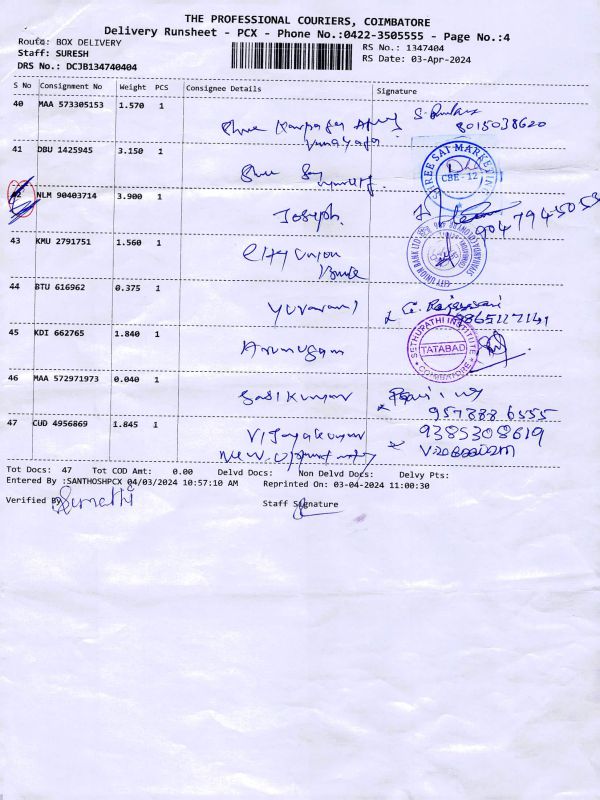 THE PROFESSIONAL COURIERS, COIMBATORE
Delivery Runsheet - PCX - Phone No.:0422-3505555 - Page No.:4
Route: BOX DELIVERY
RS No.: 1347404
Staff: SURESH
RS Date: 03-Apr-2024
DRS No.: DCJB134740404
S No Consignment No Weight PCS Consignee Details Signature
40 MAA 573305153 1.570 1
8015038620
41 DBU 1425945 3.150 1
Shree
SHREE SAI MARKETING
CBE - 12
42 NLM 90403714 3.900 1
Joseph
9047945053
43 KMU 2791751 1.560 1
City Union
Bank
CITY UNION BANK LTD
44 BTU 616962 0.375 1
Yuvarani
9865127141
45 KDI 662765 1.840 1
Arumugam
SETHUPATHI INSTITUTE
TATABAD
COIMBATORE
46 MAA 572971973 0.040 1
Sasikumar
9578886555
47 CUD 4956869 1.845 1
Vijayakumar
9385308619
New
Tot Docs: 47 Tot COD Amt: 0.00 Delvd Docs: Non Delvd Docs: Delvy Pts:
Entered By :SANTHOSHPCX 04/03/2024 10:57:10 AM Reprinted On: 03-04-2024 11:00:30
Verified By Sumathi
Staff Signature